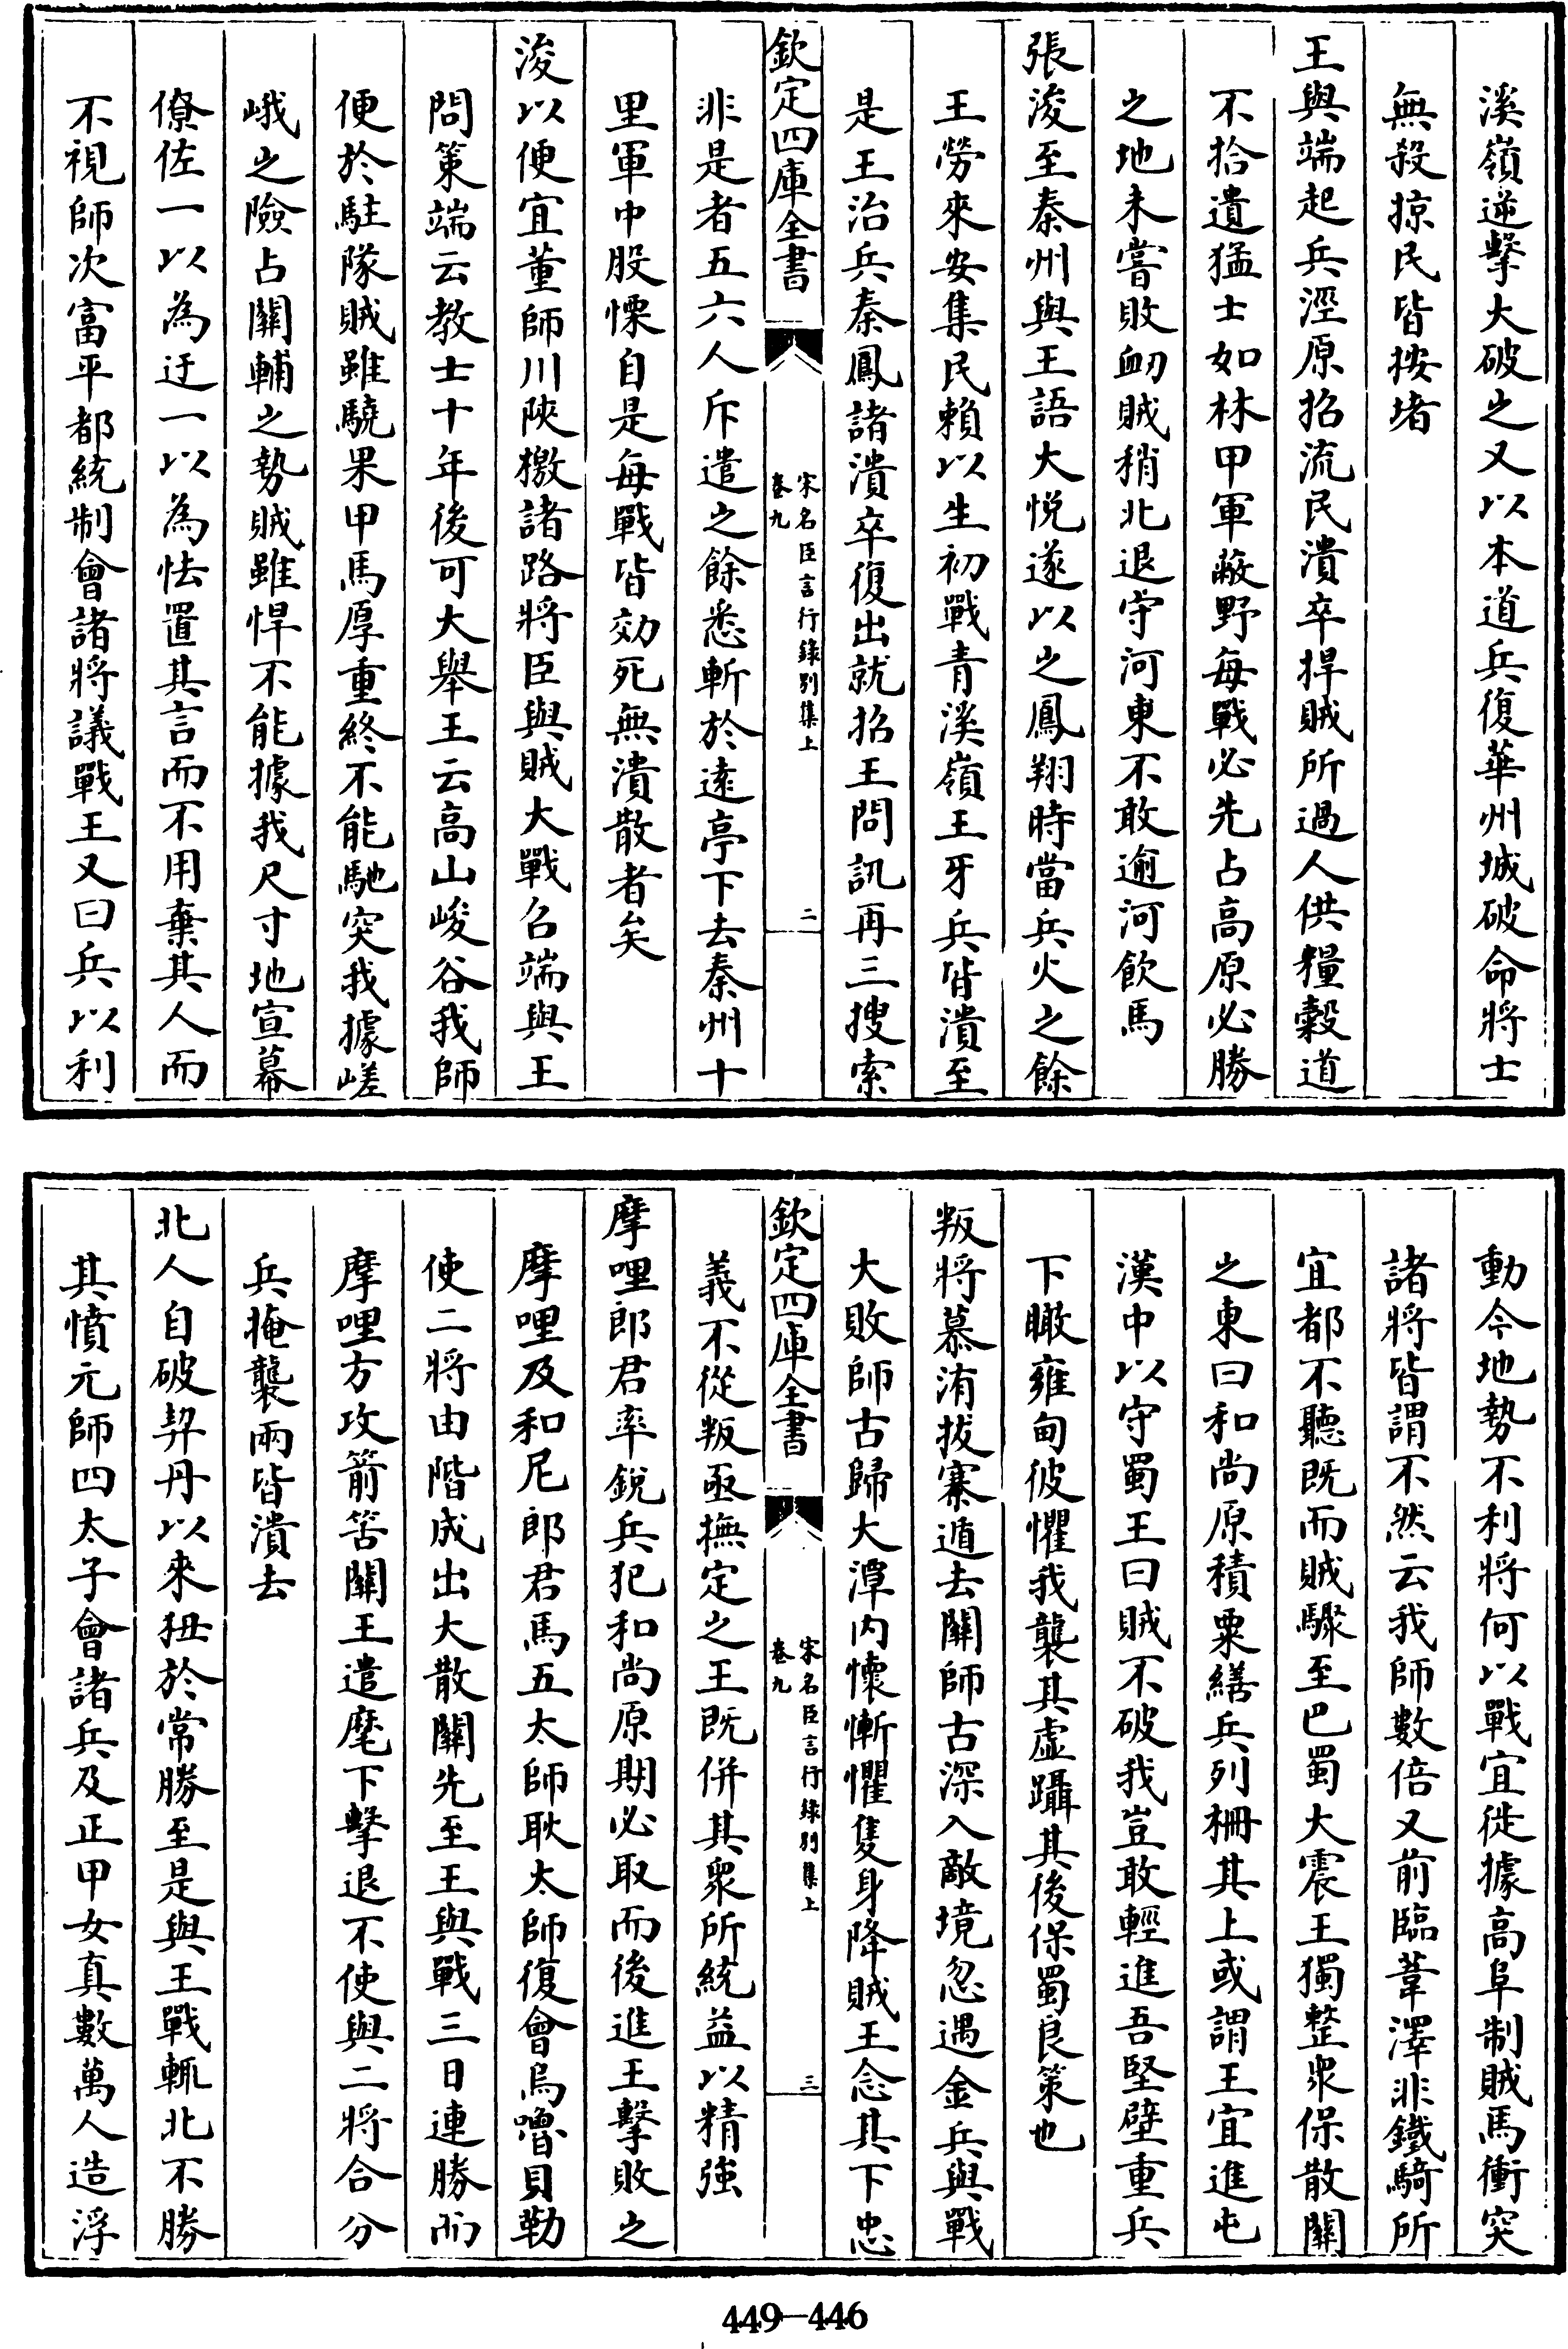 溪嶺逆擊大破之又以本道兵復華州城破命將士
無殺掠民皆按堵
王與端起兵涇原招流民潰卒捍賊所過人供糧穀道
不拾遺猛士如林甲軍蔽野每戰必先占高原必勝
之地未嘗敗衂賊稍北退守河東不敢逾河飲馬
張浚至秦州與王語大悅遂以之鳳翔時當兵火之餘
王勞來安集民賴以生初戰青溪嶺王牙兵皆潰至
是王治兵秦鳳諸潰卒復出就招王問訊再三搜索
欽定四庫全書
宋名臣言行錄別集上
卷九
二
非是者五六人斥遣之餘悉斬於遠亭下去秦州十
里軍中股慄自是每戰皆効死無潰散者矣
浚以便宜董師川陝檄諸路將臣與賊大戰召端與王
問策端云教士十年後可大舉王云高山峻谷我師
便於駐隊賊雖驍果甲馬厚重終不能馳突我據嵯
峨之險占關輔之勢賊雖悍不能據我尺寸地宣幕
僚佐一以為迂一以為怯置其言而不用棄其人而
不視師次富平都統制會諸將議戰王又曰兵以利
動今地勢不利將何以戰宜徙據高阜制賊馬衝突
諸將皆謂不然云我師數倍又前臨葦澤非鐵騎所
宜都不聽既而賊驟至巴蜀大震王獨整衆保散關
之東曰和尚原積粟繕兵列柵其上或謂王宜進屯
漢中以守蜀王曰賊不破我豈敢輕進吾堅壁重兵
下瞰雍甸彼懼我襲其虛躡其後保蜀良策也
叛將慕洧拔寨遁去關師古深入敵境忽遇金兵與戰
大敗師古歸大潭内懷慚懼隻身降賊王念其下忠
欽定四庫全書
宋名臣言行錄別集上
卷九
三
義不從叛亟撫定之王既併其衆所統益以精強
摩哩郎君率銳兵犯和尚原期必取而後進王擊敗之
摩哩及和尼郎君馬五太師耿太師復會烏嚕貝勒
使二將由階成出大散關先至王與戰三日連勝而
摩哩方攻箭筈關王遣麾下擊退不使與二將合分
兵掩襲兩皆潰去
北人自破契丹以來狃於常勝至是與王戰輒北不勝
其憤元帥四太子會諸兵及正甲女真數萬人造浮
449—446